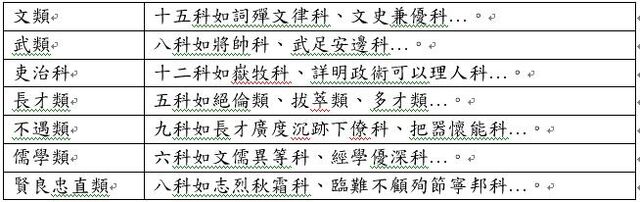 文類 十五科如詞殫文律科、文史兼優科…。
武類 八科如將帥科、武足安邊科…。
吏治科 十二科如嶽牧科、詳明政術可以理人科…。
長才類 五科如絕倫類、拔萃類、多才類…。
不遇類 九科如長才廣度沉跡下僚科、把器懷能科…。
儒學類 六科如文儒異等科、經學優深科…。
賢良忠直類 八科如志烈秋霜科、臨難不顧殉節寧邦科…。